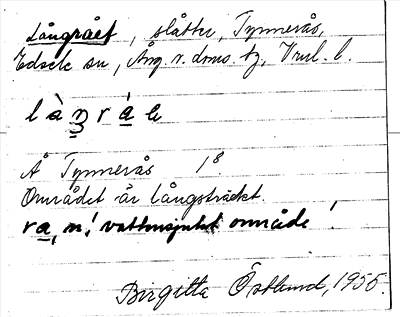 Långrået, slåtter, Tynnerås,
Edsele sn, Ång. v. doms. tg, Vnrl. l.
l à ŋ r á e
Å Tynnerås 1⁸
Området är långsträckt.
ra, n.! vattensjukt område!
Birgitta Östlund, 1955.